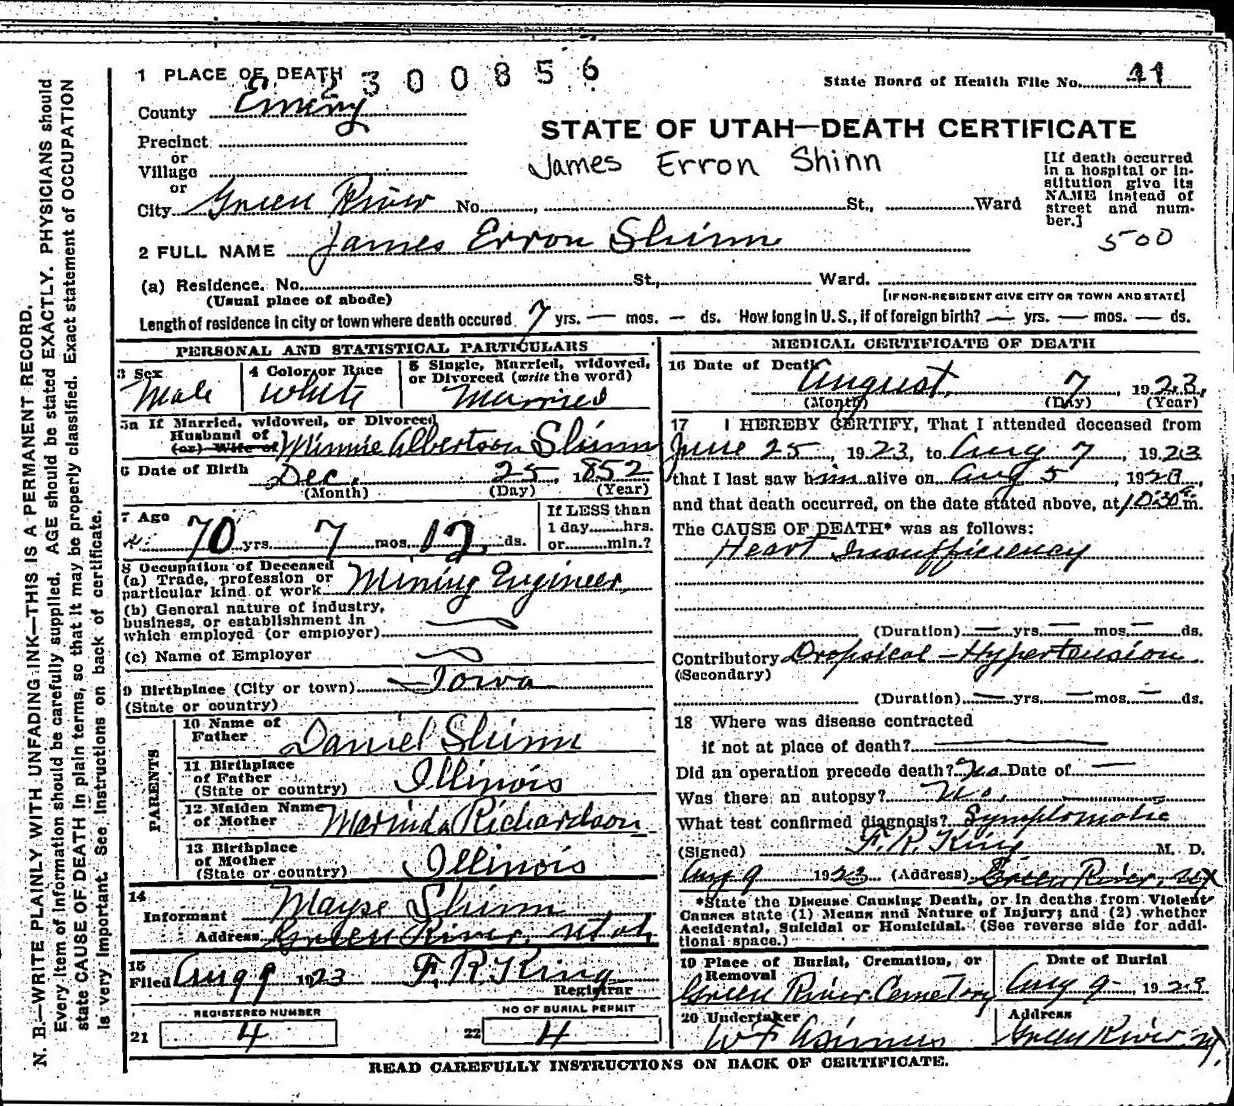 1 PLACE OF DEATH
2300856
State Board of Health File No. 41
County Emery
STATE OF UTAH—DEATH CERTIFICATE
Precinct
or
Village
or
James Erron Shinn
[If death occurred
in a hospital or in-
stitution give its
NAME instead of
street and num-
ber.]
City Green River No. , St., Ward
500
2 FULL NAME James Erron Shinn
(a) Residence. No. St., Ward.
(Usual place of abode)
[IF NON-RESIDENT GIVE CITY OR TOWN AND STATE]
Length of residence in city or town where death occured 7 yrs. — mos. — ds. How long in U. S., if of foreign birth? — yrs. — mos. — ds.
PERSONAL AND STATISTICAL PARTICULARS
3 Sex
Male
4 Color or Race
White
5 Single, Married, widowed,
or Divorced (write the word)
Married
5a If Married, widowed, or Divorced
Husband of
(or) Wife of Minnie Albertson Shinn
6 Date of Birth
Dec. 25, 1852
(Month) (Day) (Year)
7 Age
70 yrs. 7 mos. 12 ds.
If LESS than
1 day hrs.
or min.?
8 Occupation of Deceased
(a) Trade, profession or
particular kind of work Mining Engineer
(b) General nature of industry,
business, or establishment in
which employed (or employer)
(c) Name of Employer
9 Birthplace (City or town) —Iowa
(State or country)
PARENTS
10 Name of
Father Daniel Shinn
11 Birthplace
of Father
(State or country) Illinois
12 Maiden Name
of Mother Marinda Richardson
13 Birthplace
of Mother
(State or country) Illinois
14
Informant Mayse Shinn
Address Green River, Utah
15
Filed Aug 9 1923 F. R. King
Registrar
REGISTERED NUMBER
21 4
NO OF BURIAL PERMIT
22 4
MEDICAL CERTIFICATE OF DEATH
16 Date of Death August, 7, 1923,
(Month) (Day) (Year)
17 I HEREBY CERTIFY, That I attended deceased from
June 25, 1923, to Aug 7, 1923
that I last saw him alive on Aug 5, 1923,
and that death occurred, on the date stated above, at 10:30 m.
The CAUSE OF DEATH* was as follows:
Heart Insufficiency
(Duration) — yrs. — mos. — ds.
Contributory Dropsical - Hypertension
(Secondary)
(Duration) — yrs. — mos. — ds.
18 Where was disease contracted
if not at place of death? —
Did an operation precede death? No Date of —
Was there an autopsy? No.
What test confirmed diagnosis? Symptomatic
(Signed) F. R. King M. D.
Aug 9 1923 (Address) Green River, Ut
*State the Disease Causing Death, or in deaths from Violent
Causes state (1) Means and Nature of Injury; and (2) whether
Accidental, Suicidal or Homicidal. (See reverse side for addi-
tional space.)
19 Place of Burial, Cremation, or
Removal
Green River Cemetery
Date of Burial
Aug 9, 1923
20 Undertaker
W F
Address
Green River, Ut
READ CAREFULLY INSTRUCTIONS ON BACK OF CERTIFICATE.
N. B.—WRITE PLAINLY WITH UNFADING INK—THIS IS A PERMANENT RECORD.
Every item of information should be carefully supplied. AGE should be stated EXACTLY. PHYSICIANS should
state CAUSE OF DEATH in plain terms, so that it may be properly classified. Exact statement of OCCUPATION
is very important. See instructions on back of certificate.